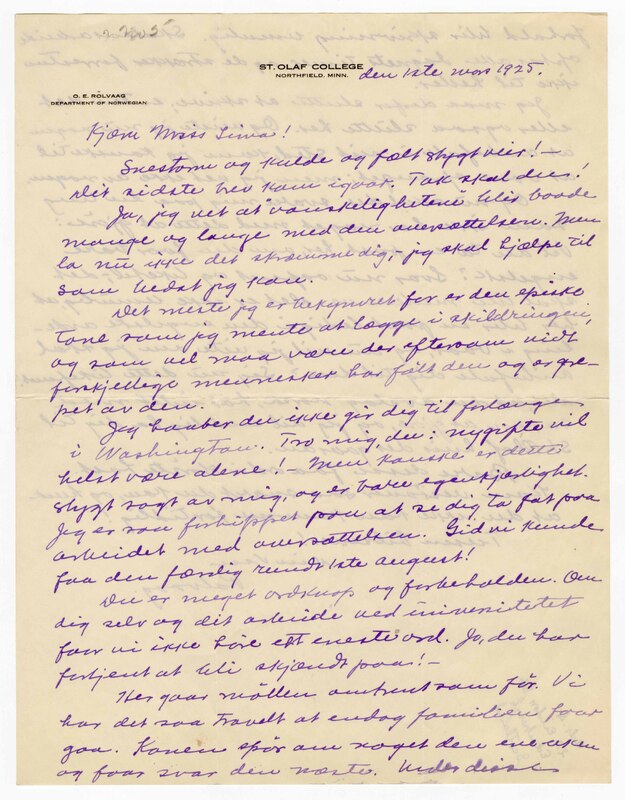 ST. OLAF COLLEGE
NORTHFIELD, MINN.
den 1ste mars 1925.
O. E. ROLVAAG
DEPARTMENT OF NORWEGIAN
Kjære Miss Lima!
Snestorm og kulde og fælt stygt veir! —
Det sidste brev kom igaar. Tak skal du!
Ja, jeg vet at vanskelighetene blir baade
mange og lange med den oversættelsen. Men
la nu ikke det skræmme dig, – jeg skal hjælpe til
som bedst jeg kan.
Det meste jeg er bekymret for er den episke
tone som jeg mente at lægge i skildringen,
og som vel maa være der eftersom vidt
forskjellige mennesker har følt den og er gre-
pet av den.
Jeg haaber du ikke gir dig til for længe
i Washington. Tro mig, du: nygifte vil
helst være alene! – Men kanske er dette
stygt sagt av mig, og er bare egenkjærlighet.
Jeg er saa forhippet paa at se dig ta fat paa
arbeidet med oversættelsen. Gid vi kunde
faa den færdig rundt 1ste august!
Du er meget ordknap og forbeholden. Om
dig selv og dit arbeide ved universitetet
faar vi ikke høre ett eneste ord. Jo, du har
fortjent at bli skjændt paa! –
Her gaar møllen omtrent som før. Vi
har det saa travelt at endog familien faar
gaa. Konen spør om noget den ene uken
og faar svar den næste. Under disse